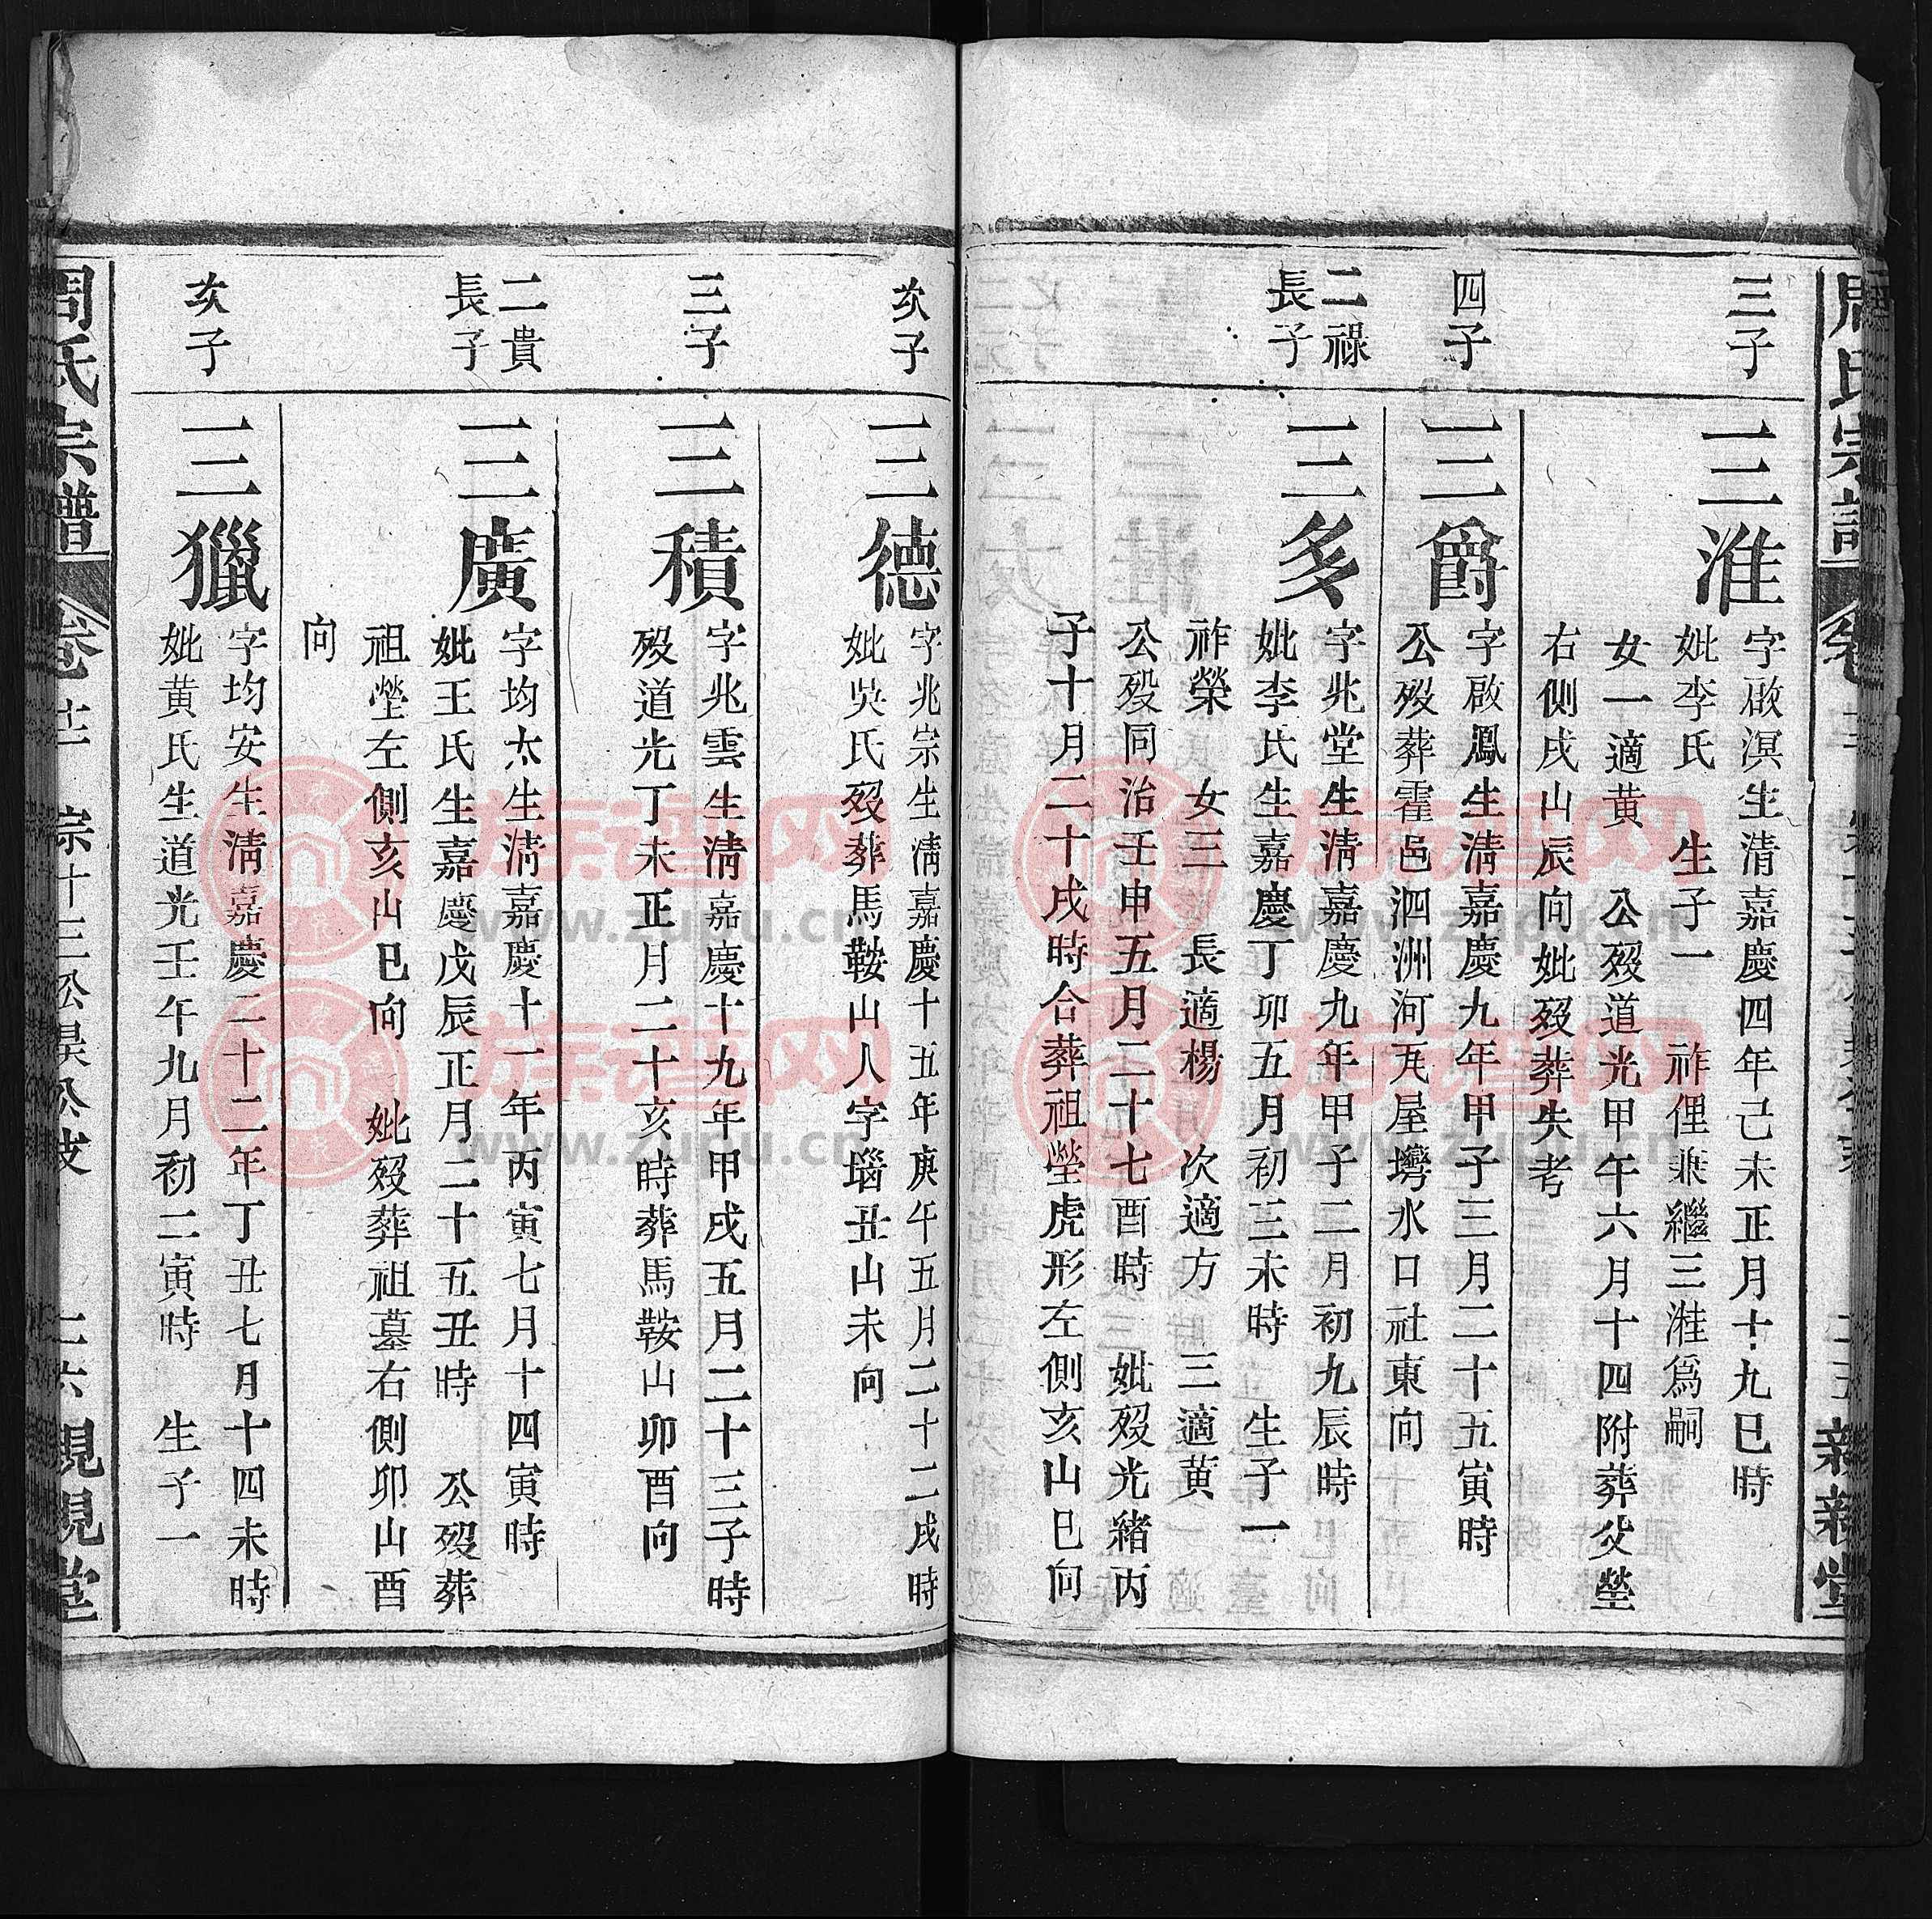 周氏宗譜
三子
三淮
字啟溟生清嘉慶四年己未正月十九巳時
妣李氏 生子一 祚俚兼繼三湹為嗣
女一適黄 公歿道光甲午六月十四附葬父塋
右側戌山辰向妣歿葬失考
四子
三爵
字啟鳳生清嘉慶九年甲子三月二十五寅時
公歿葬霍邑泗洲河瓦屋塆水口社東向
二祿
長子
三多
字兆堂生清嘉慶九年甲子二月初九辰時
妣李氏生嘉慶丁卯五月初三未時 生子一
祚榮 女三 長適楊 次適方 三適黄
公歿同治壬申五月二十七酉時 妣歿光緒丙
子十月二十戌時合葬祖塋虎形左側亥山巳向
次子
三德
字兆宗生清嘉慶十五年庚午五月二十二戌時
妣吳氏歿葬馬鞍山人字瑙丑山未向
三子
三積
字兆雲生清嘉慶十九年甲戌五月二十三子時
歿道光丁未正月二十亥時葬馬鞍山卯酉向
二貴
長子
三廣
字均太生清嘉慶十一年丙寅七月十四寅時
妣王氏生嘉慶戊辰正月二十五丑時 公歿葬
祖塋左側亥山巳向 妣歿葬祖墓右側卯山酉
向
次子
三獵
字均安生清嘉慶二十二年丁丑七月十四未時
妣黄氏生道光壬午九月初二寅時 生子一
周氏宗譜 卷廿 宗十三公昊公支 二六 親親堂
族谱网
www.zupu.cn
族谱网
www.zupu.cn
族谱网
www.zupu.cn
族谱网
www.zupu.cn